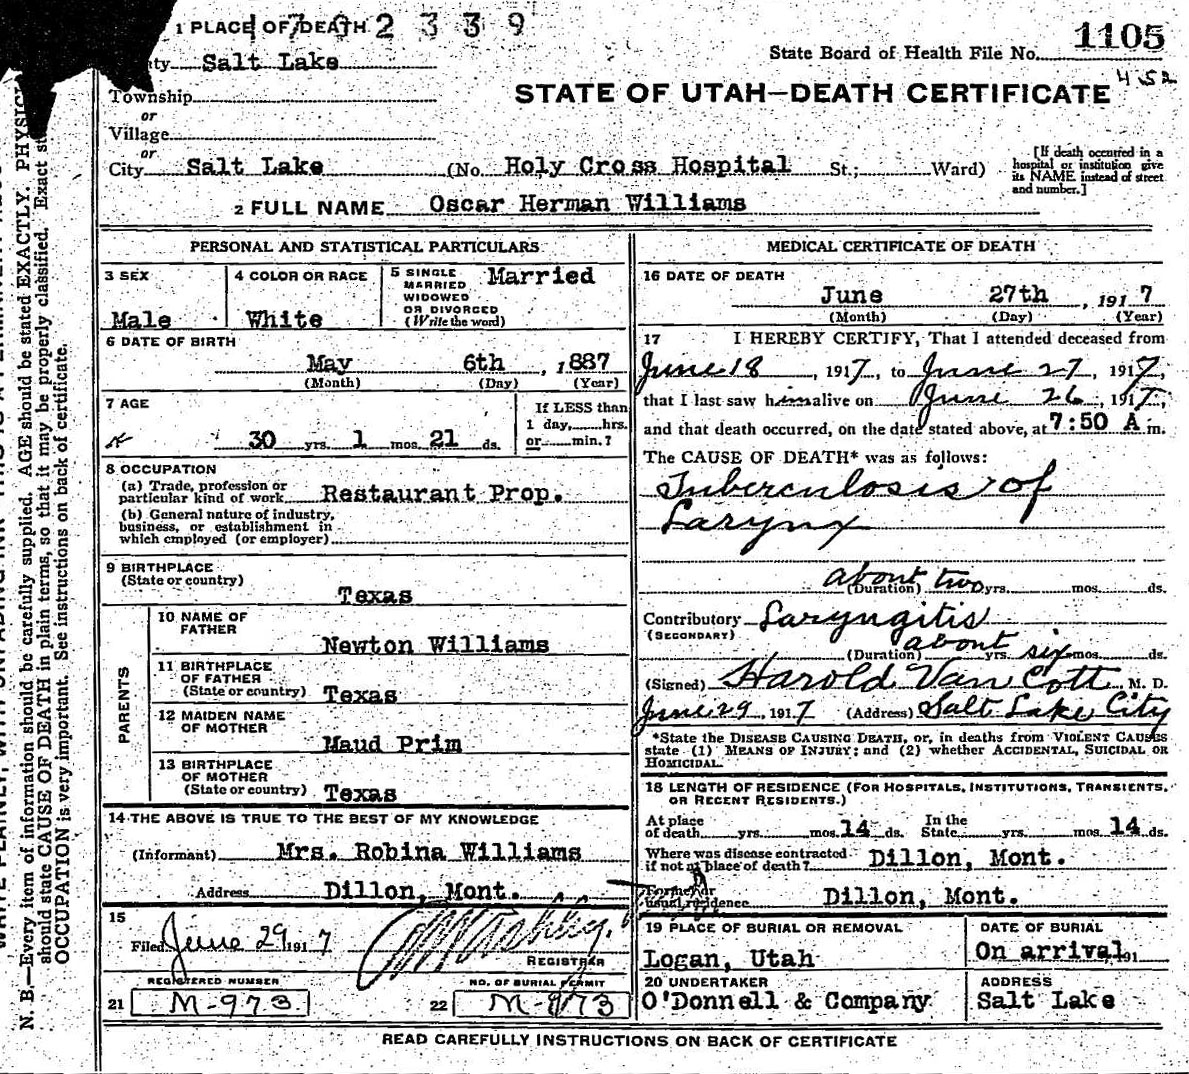 1 PLACE OF DEATH 1 7 0 2 3 3 9
State Board of Health File No. 1105
Salt Lake
452
Township
STATE OF UTAH—DEATH CERTIFICATE
or
Village
or
City Salt Lake (No. Holy Cross Hospital St.; Ward)
[If death occurred in a hospital or institution give its NAME instead of street and number.]
2 FULL NAME Oscar Herman Williams
PERSONAL AND STATISTICAL PARTICULARS
3 SEX
Male
4 COLOR OR RACE
White
5 SINGLE MARRIED WIDOWED OR DIVORCED (Write the word) Married
6 DATE OF BIRTH
May 6th, 1887
(Month) (Day) (Year)
7 AGE
30 yrs. 1 mos. 21 ds.
If LESS than
1 day, hrs.
or min.?
8 OCCUPATION
(a) Trade, profession or
particular kind of work Restaurant Prop.
(b) General nature of industry,
business, or establishment in
which employed (or employer)
9 BIRTHPLACE
(State or country)
Texas
PARENTS
10 NAME OF
FATHER
Newton Williams
11 BIRTHPLACE
OF FATHER
(State or country) Texas
12 MAIDEN NAME
OF MOTHER
Maud Prim
13 BIRTHPLACE
OF MOTHER
(State or country) Texas
14 THE ABOVE IS TRUE TO THE BEST OF MY KNOWLEDGE
(Informant) Mrs. Robina Williams
Address Dillon, Mont.
15
Filed June 29 1917
REGISTRAR
REGISTERED NUMBER
21 M-973
NO. OF BURIAL PERMIT
22 M-973
MEDICAL CERTIFICATE OF DEATH
16 DATE OF DEATH
June 27th, 1917
(Month) (Day) (Year)
17 I HEREBY CERTIFY, That I attended deceased from
June 18, 1917, to June 27, 1917,
that I last saw him alive on June 26, 1917,
and that death occurred, on the date stated above, at 7:50 A m.
The CAUSE OF DEATH* was as follows:
Tuberculosis of
Larynx
about two
(Duration) yrs. mos. ds.
Contributory Laryngitis
(SECONDARY)
about six
(Duration) yrs. mos. ds.
(Signed) Harold Van Cott M. D.
June 29, 1917 (Address) Salt Lake City
*State the DISEASE CAUSING DEATH, or, in deaths from VIOLENT CAUSES
state (1) MEANS OF INJURY; and (2) whether ACCIDENTAL, SUICIDAL OR
HOMICIDAL.
18 LENGTH OF RESIDENCE (FOR HOSPITALS, INSTITUTIONS, TRANSIENTS,
OR RECENT RESIDENTS.)
At place of death yrs. mos. 14 ds. In the State yrs. mos. 14 ds.
Where was disease contracted
if not at place of death? Dillon, Mont.
Former or
usual residence Dillon, Mont.
19 PLACE OF BURIAL OR REMOVAL
Logan, Utah
DATE OF BURIAL
On arrival 191
20 UNDERTAKER
O'Donnell & Company
ADDRESS
Salt Lake
READ CAREFULLY INSTRUCTIONS ON BACK OF CERTIFICATE
N. B.—Every item of information should be carefully supplied. AGE should be stated EXACTLY.
should state CAUSE OF DEATH in plain terms, so that it may be properly classified. Exact
OCCUPATION is very important. See instructions on back of certificate.